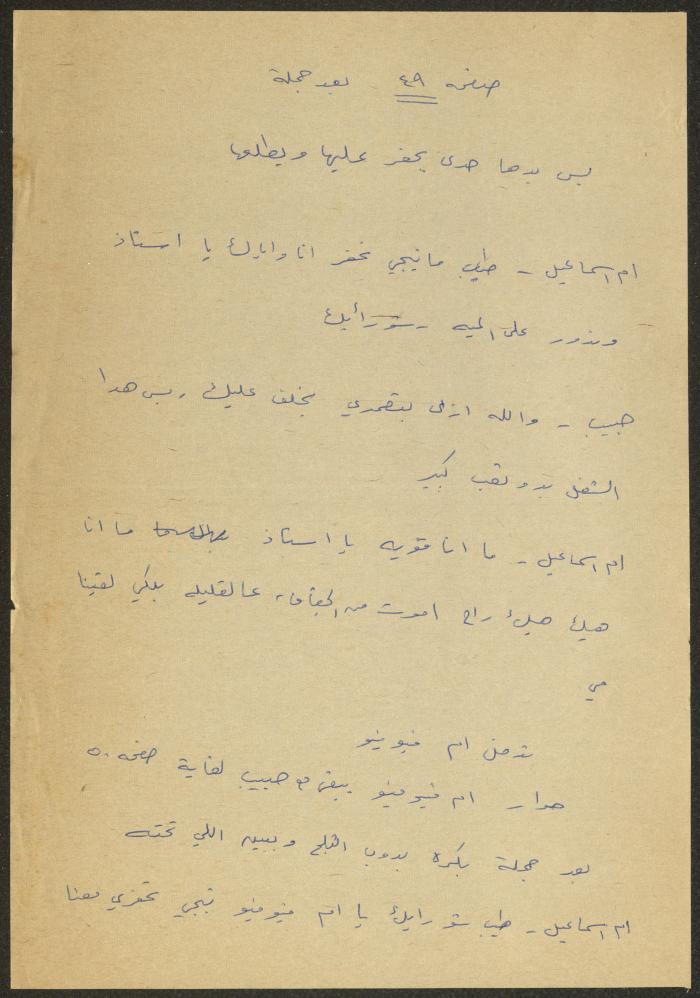 صفحة ٤٩ بعد جملة
بس بدها حدى يحفر عليها ويطلعها
ام اسماعيل - طيب ما نيجي نحفر انا واياك يا استاذ
وندور على الميه - شو رأيك
حبيب - والله ازا بتقدري بخلف عليك . بس هدا
الشغل بدو تعب كبير
ام اسماعيل - ما انا قويه يا استاذ ما انا
هيك هيك راح اموت من الجفاف، عالقليله بلكي لقينا
مي
تدخل ام فيوفيو
حوار ام فيوفيو يبقى مع حبيب لغاية صفحه ٥٠
بعد جملة بكره بدوب التلج وببين اللي تحته
ام اسماعيل - طيب شو رايك يا ام فيوفيو تيجي تحفري معنا